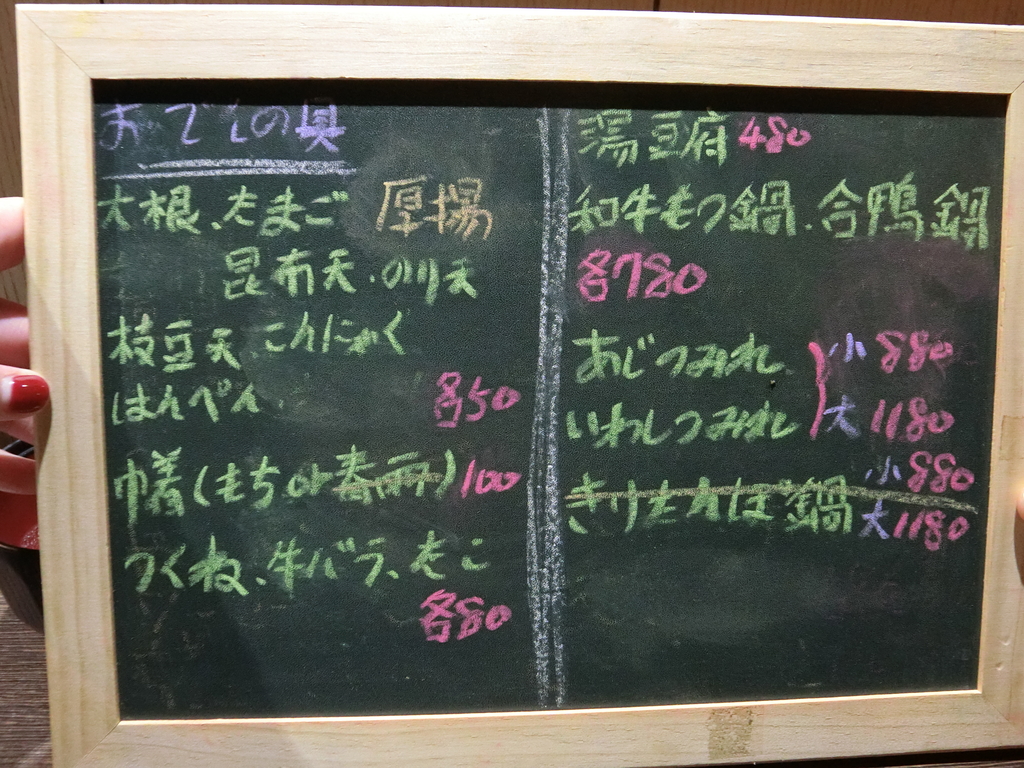 おでんの具
大根、たまご 厚揚
昆布天.のり天
枝豆天、こんにゃく
はんぺん. 各50
巾着(もちor春雨)100
つくね、牛バラ、たこ
各80
湯豆府480
和牛もつ鍋.合鴨鍋
各780
あじつみれ 小880
いわしつみれ 大1180
きりたんぽ鍋 小880
大1180